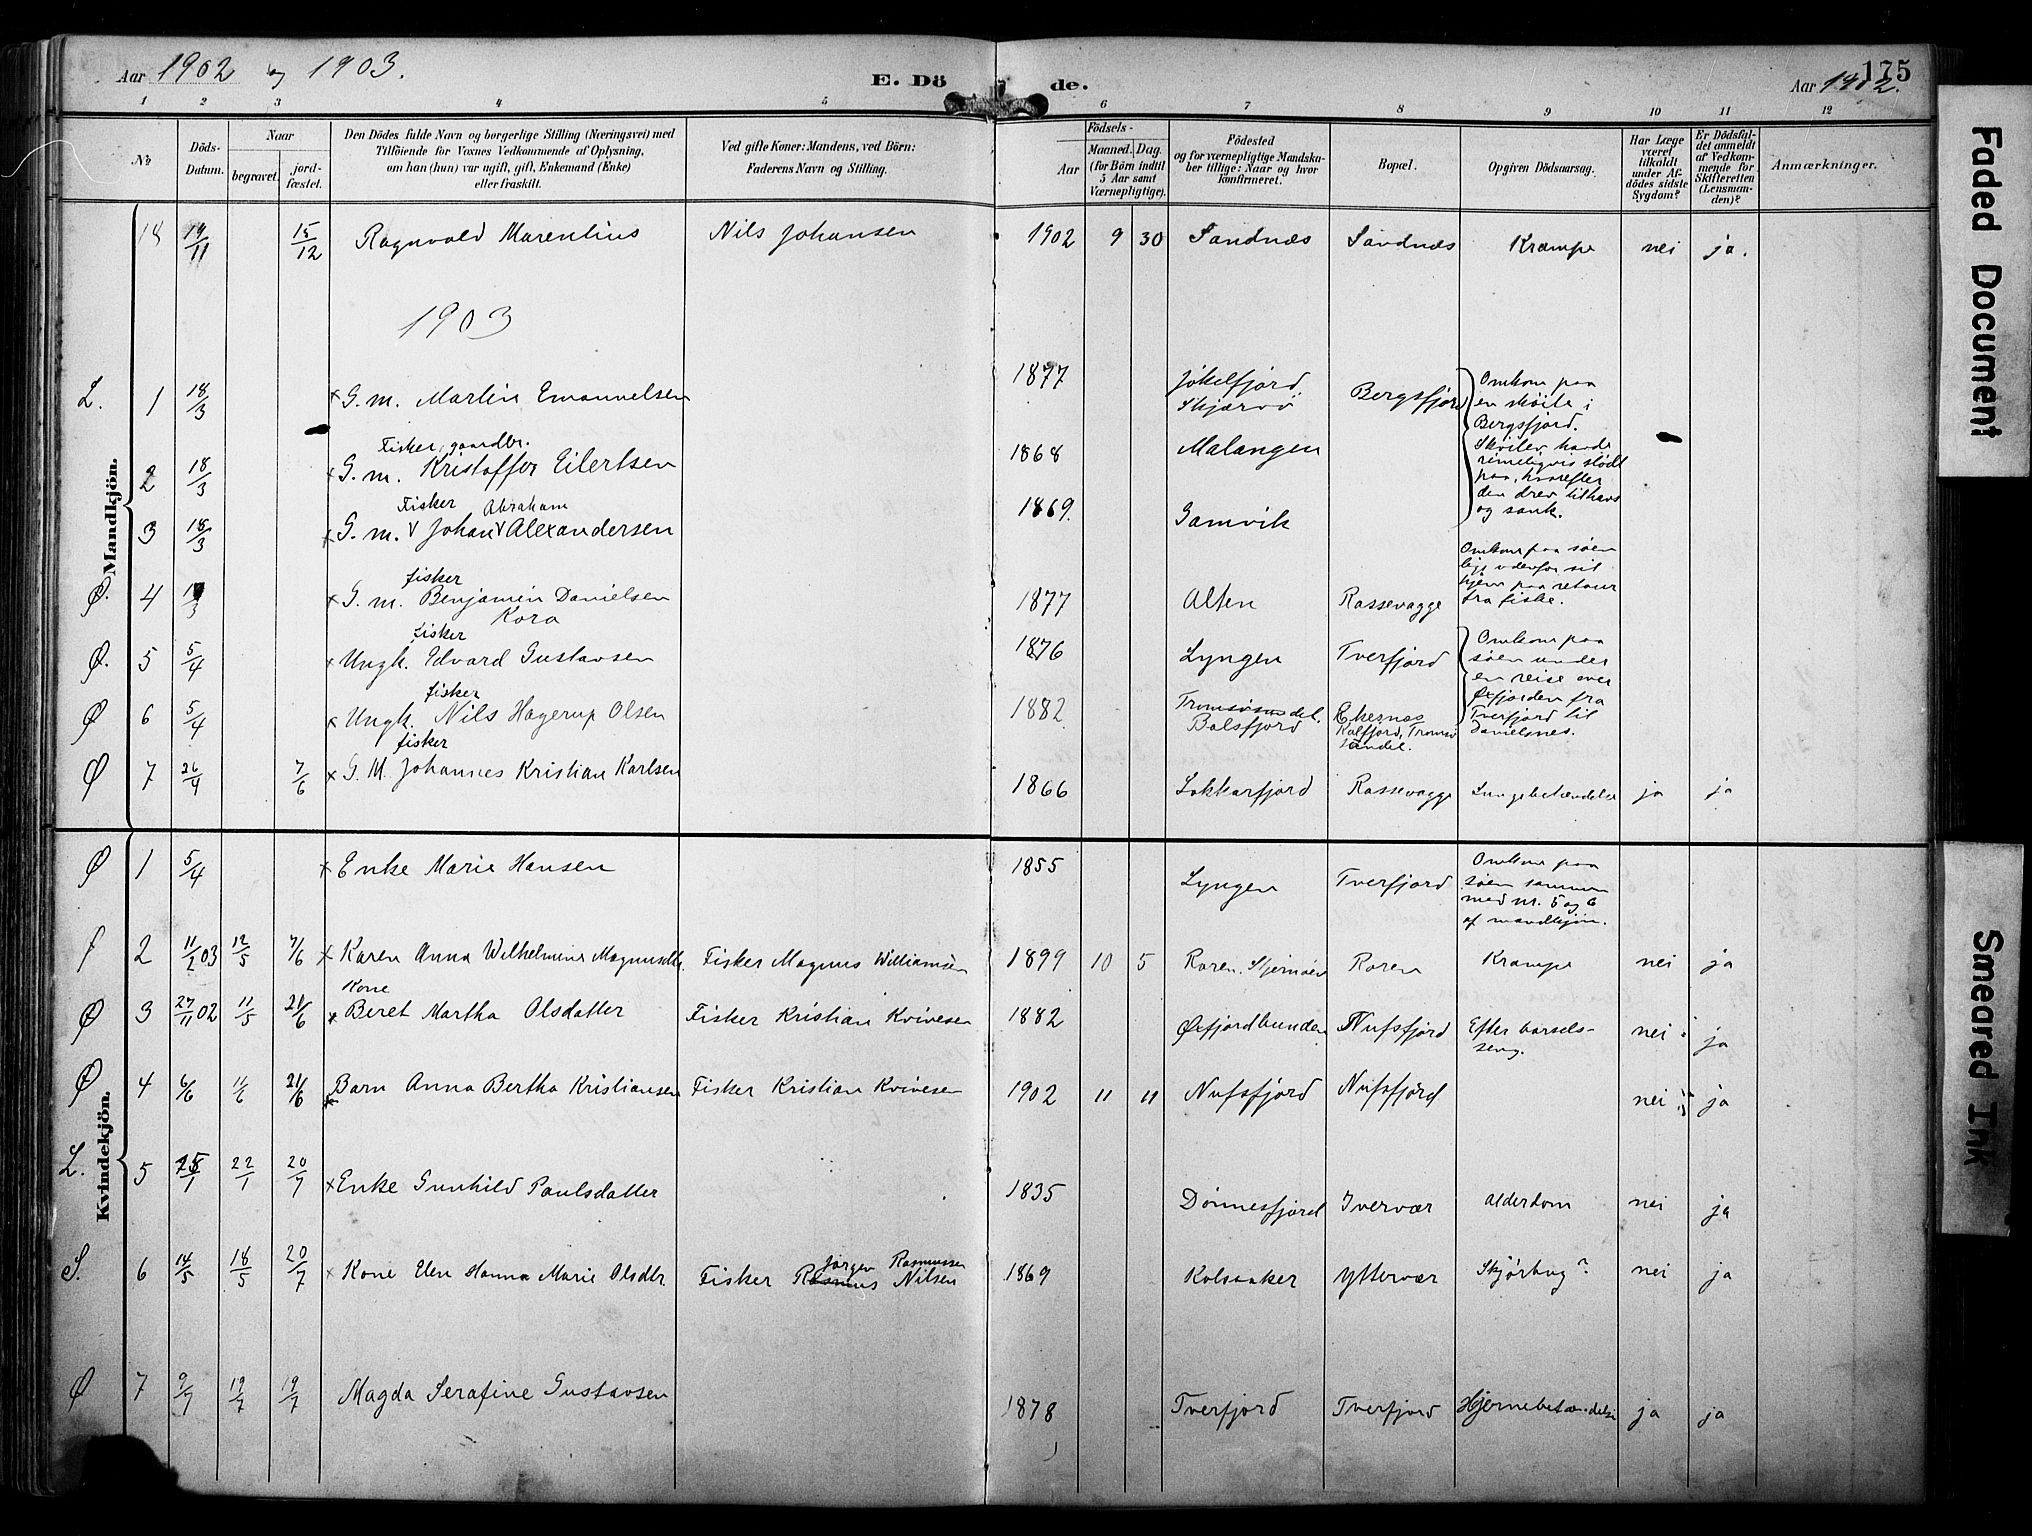 Aar 1902 og 1903.
E. Dö de.
175
Aar 1902.
1 2 3 4 5 6 7 8 9 10 11 12
No
Döds-Datum.
Naar
begravet.
jord-fæstet.
Den Dödes fulde Navn og borgerlige Stilling (Næringsvei) med
Tilföiende for Voxnes Vedkommende af Oplysning,
om han (hun) var ugift, gift, Enkemand (Enke)
eller fraskilt.
Ved gifte Koner: Mandens, ved Börn:
Faderens Navn og Stilling.
Födsels-
Aar
Maaned. Dag.
(for Börn indtil
5 Aar samt
Værnepligtige).
Födested
og for værnepligtige Mandska-
ber tillige: Naar og hvor
konfirmeret.
Bopæl.
Opgiven Dödsaarsag.
Har Læge
været
tilkaldt
under Af-
dödes sidste
Sygdom?
Er Dödsfal-
det anmeldt
af Vedkom-
mende for
Skifteretten
(Lensman-
den)?
Anmærkninger.
Mandkjön.
18 19/11 15/12 Ragnvald Marentius Nils Johansen 1902 9 30 Sandnæs Sandnæs Krampe nei ja.
1903
L. 1 18/3 × G. m. Martin Emanuelsen 1877 Jökelfjord Skjærvö Bergsfjord
Omkom paa
en skøite i
Bergsfjord.
Skøiten havde
rimeligvis stødt
paa, hvorefter
den drev tilhavs
og sank.
Fisker, gaardbr.
2 18/3 × G. m. Kristoffer Eilertsen 1868 Malangen
Fisker Abraham
3 18/3 × G. m. V Johan V Alexandersen 1869. Gamvik
fisker
Ø. 4 /3 × G. m. Benjamin Danielsen 1877 Alten Rassevagge
Kora
Omkom paa søen
udenfor sit
hjem paa retour
fra fiske.
fisker
Ø. 5 5/4 × Ungk. Edvard Gustavsen 1876 Lyngen Tverfjord
Omkom paa
søen under
en reise over
Øxfjorden fra
Tverfjord til
Danielsnes.
fisker
Ø 6 5/4 × Ungk. Nils Hagerup Olsen 1882 Balsfjord Ekernes
Kalfjord, Tromsø
sundet.
fisker
Ø 7 26/4 7/6 × G. M. Johannes Kristian Karlsen 1866 Lokkarfjord Rassevagge Lungebetændelse ja ja
Kvindekjön.
Ø 1 5/4 × Enke Marie Hansen 1855 Lyngen Tverfjord
Omkom paa
søen sammen
med nr. 5 og 6
af mandkjøn.
f 2 11/2 03 12/5 7/6 × Karen Anna Wilhelmine Magnusdtr. Fisker Magnus Williamsen 1899 10 5 Raren, Stjernøen Raren Krampe nei ja
Kone
Ø 3 27/11 02 11/5 21/6 × Beret Martha Olsdatter Fisker Kristian Kvivesen 1882 Øxfjordbunden Nufsfjord Efter barsels-
seng. nei ja
Ø 4 6/6 11/6 21/6 × Barn Anna Bertha Kristiansen Fisker Kristian Kvivesen 1902 11 11 Nufsfjord Nufsfjord nei ja
L. 5 /1 22/1 20/7 × Enke Gunhild Paulsdatter 1835 Dönnesfjord Ivervær Alderdom nei ja
Jørgen Rasmussen
S. 6 14/5 18/5 20/7 × Kone Elen Hanna Marie Olsdtr Fisker Rasmus Nilsen 1869 Kolsaaker Yttervær Skjørbug? nei ja
Ø 7 9/7 19/7 19/7 Magda Serafine Gustavsen 1878 Tverfjord Tverfjord Hjernebetændelse ja ja
Faded Document
Smeared Ink